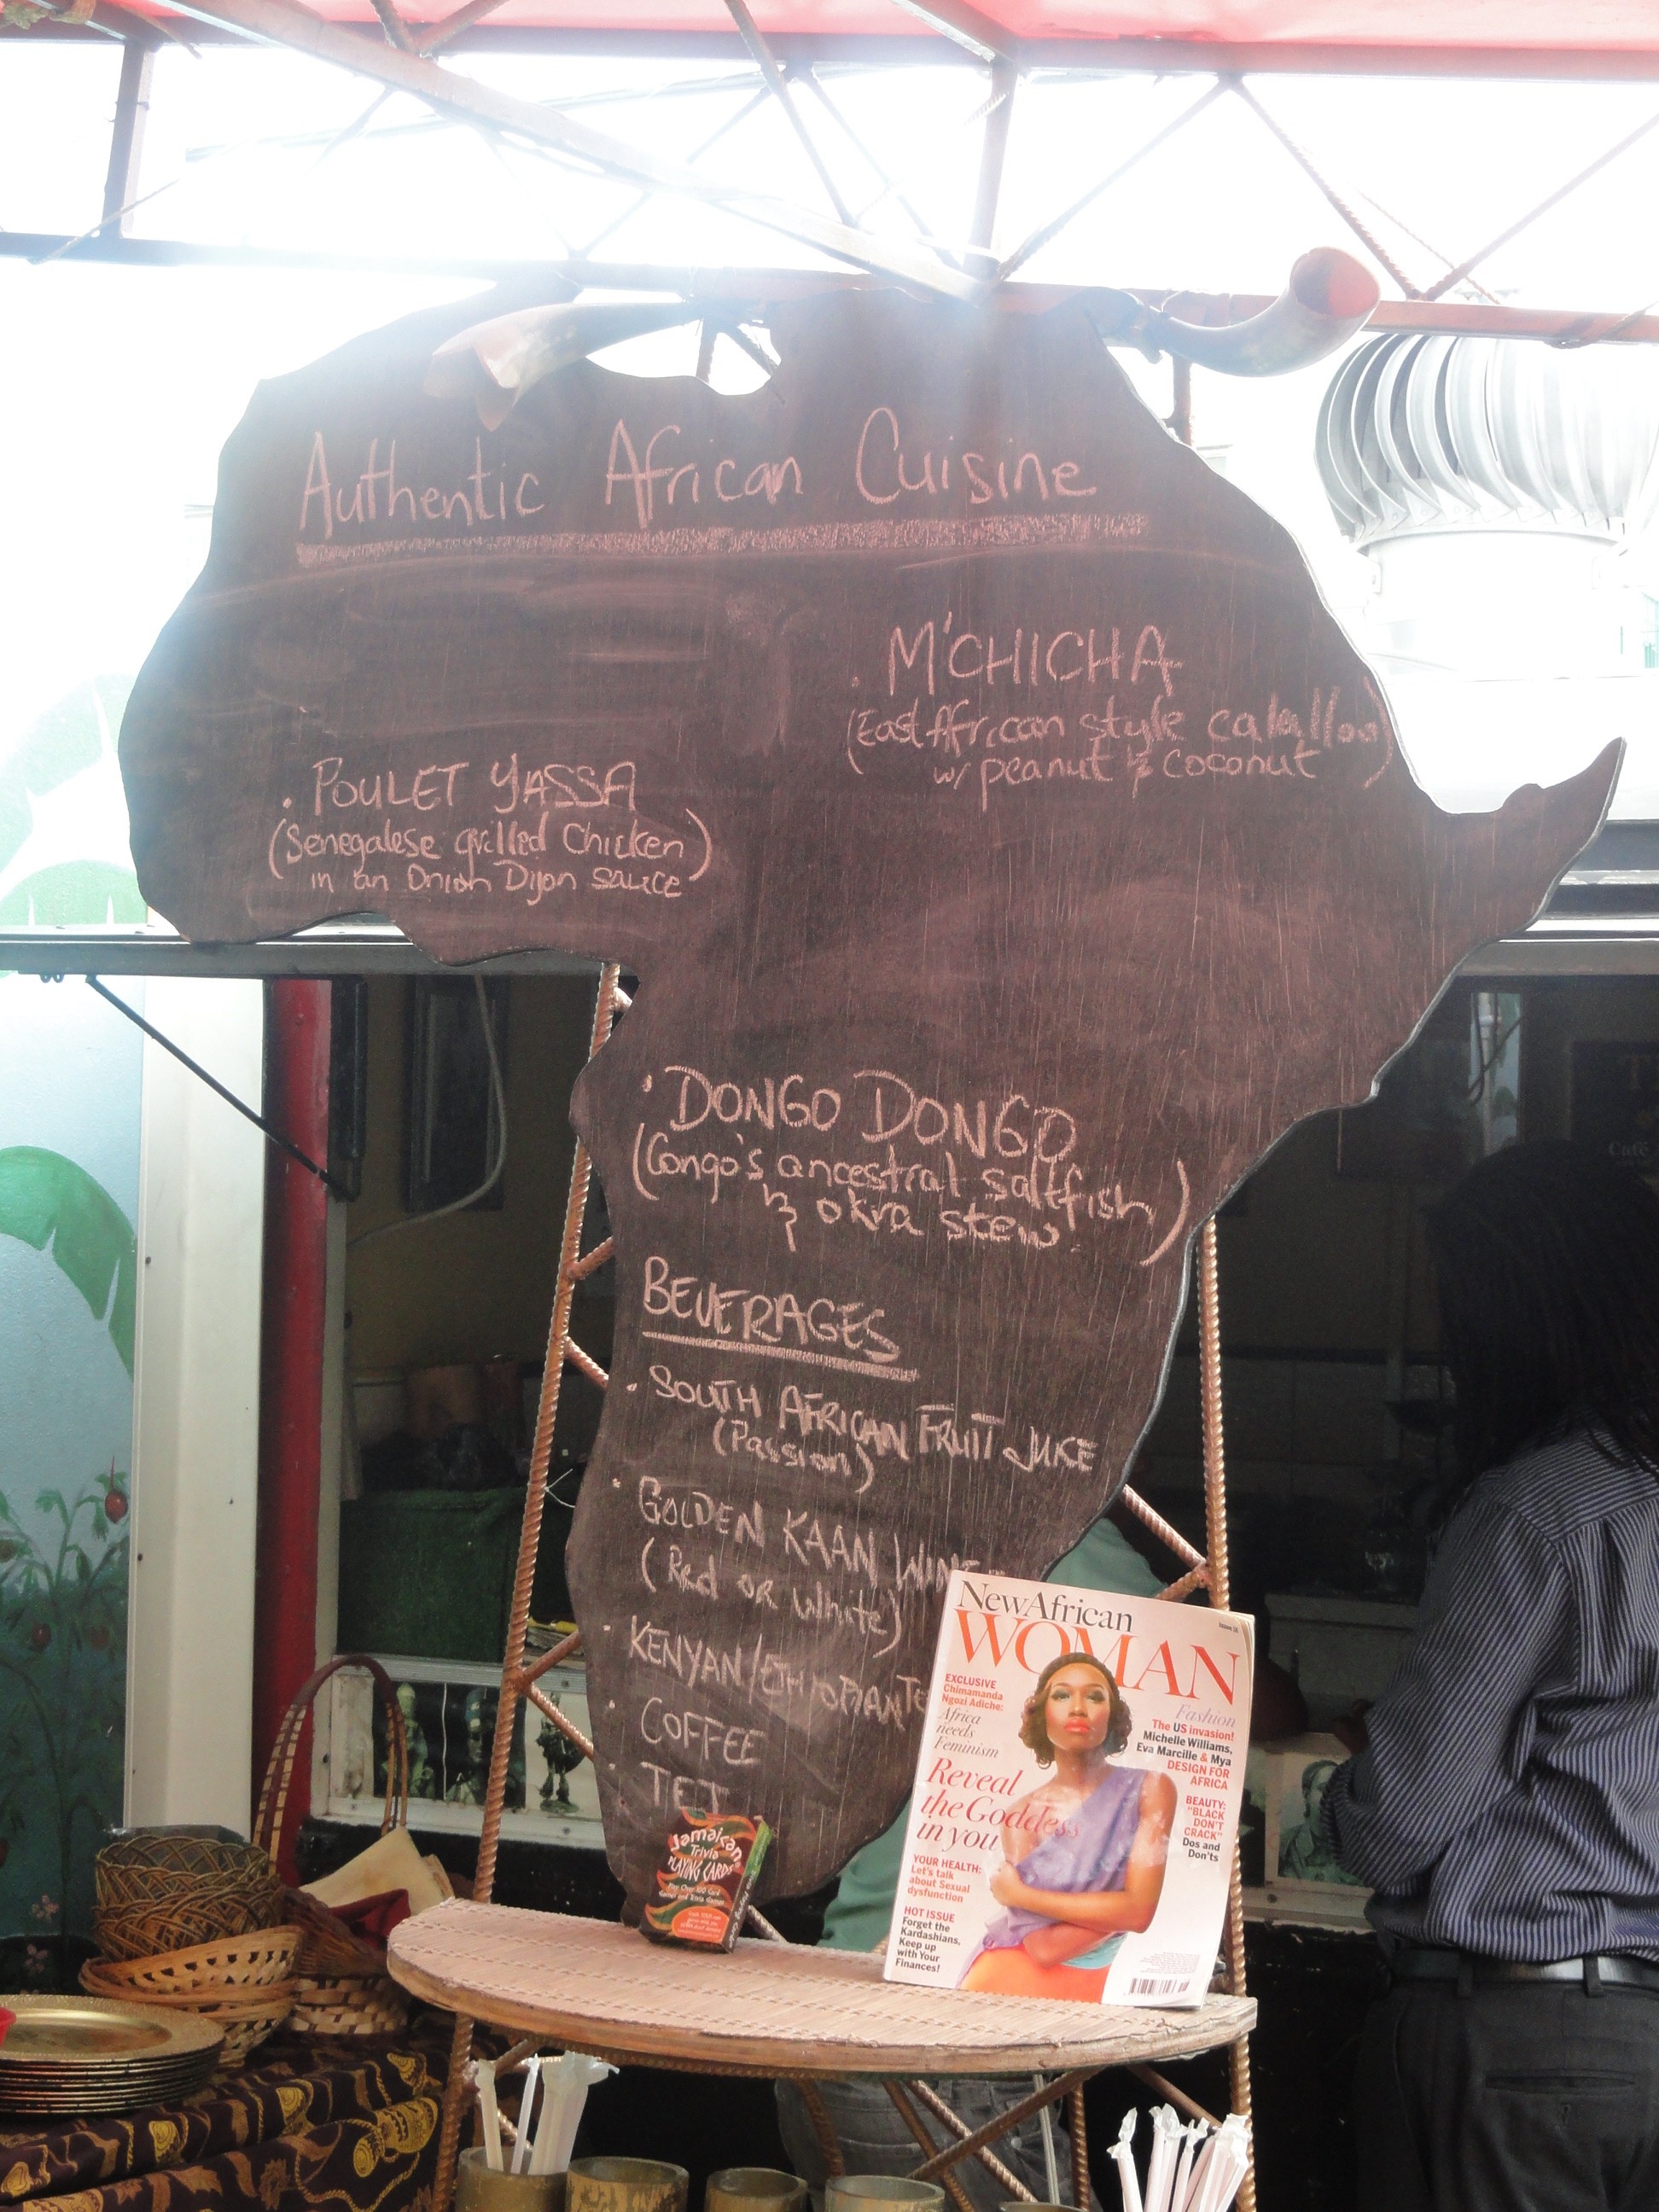 Authentic African Cuisine
. M'CHICHA
(East African style calalloo)
w/ peanut & Coconut
. POULET YASSA
(Senegalese grilled Chicken)
in an Onion Dijon sauce
. DONGO DONGO
(Congo's ancestral saltfish
& okra stew.)
BEVERAGES
. SOUTH AFRICAN FRUIT JUICE
(Passion)
. GOLDEN KAAN WINE
(Red OR White)
. KENYAN/ETHIOPIAN TE
. COFFEE
. TEJ
Jamaican
Trivia
PLAYING CARDS
NewAfrican
WOMAN
Issue 16
EXCLUSIVE
Chimamanda
Ngozi Adiche:
Africa
needs
Feminism
Reveal
the Goddess
in you
YOUR HEALTH:
Let's talk
about Sexual
dysfunction
HOT ISSUE
Forget the
Kardashians,
Keep up
with Your
Finances!
Fashion
The US invasion!
Michelle Williams,
Eva Marcille & Mya
DESIGN FOR
AFRICA
BEAUTY:
"BLACK
DON'T
CRACK"
Dos and
Don'ts
Café